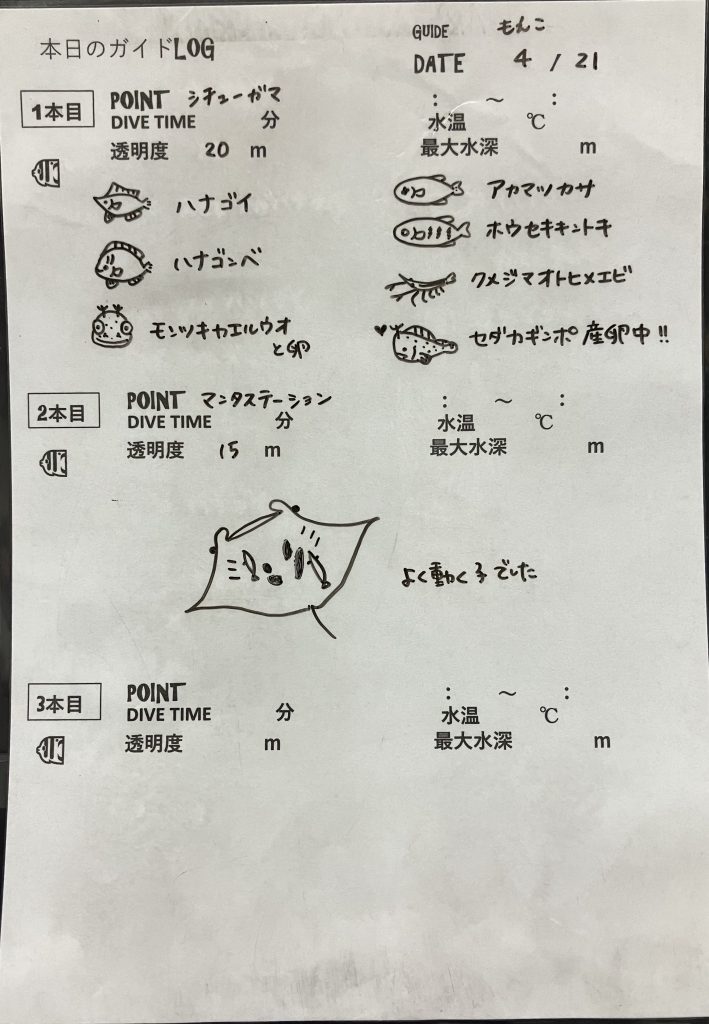 本日のガイドLOG
GUIDE もんこ
DATE 4 / 21
1本目
POINT シチューガマ
DIVE TIME 分
透明度 20 m
: ～ :
水温 ℃
最大水深 m
ハナゴイ
ハナゴンベ
モンツキカエルウオ
と卵
アカマツカサ
ホウセキキントキ
クメジマオトヒメエビ
セダカギンポ 産卵中!!
2本目
POINT マンタステーション
DIVE TIME 分
透明度 15 m
: ～ :
水温 ℃
最大水深 m
よく動く子でした
3本目
POINT
DIVE TIME 分
透明度 m
: ～ :
水温 ℃
最大水深 m